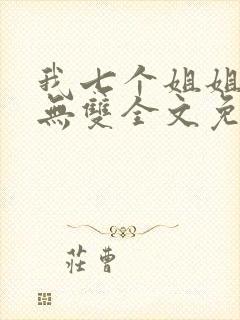 我七个姐姐
無雙全文免
莊曹